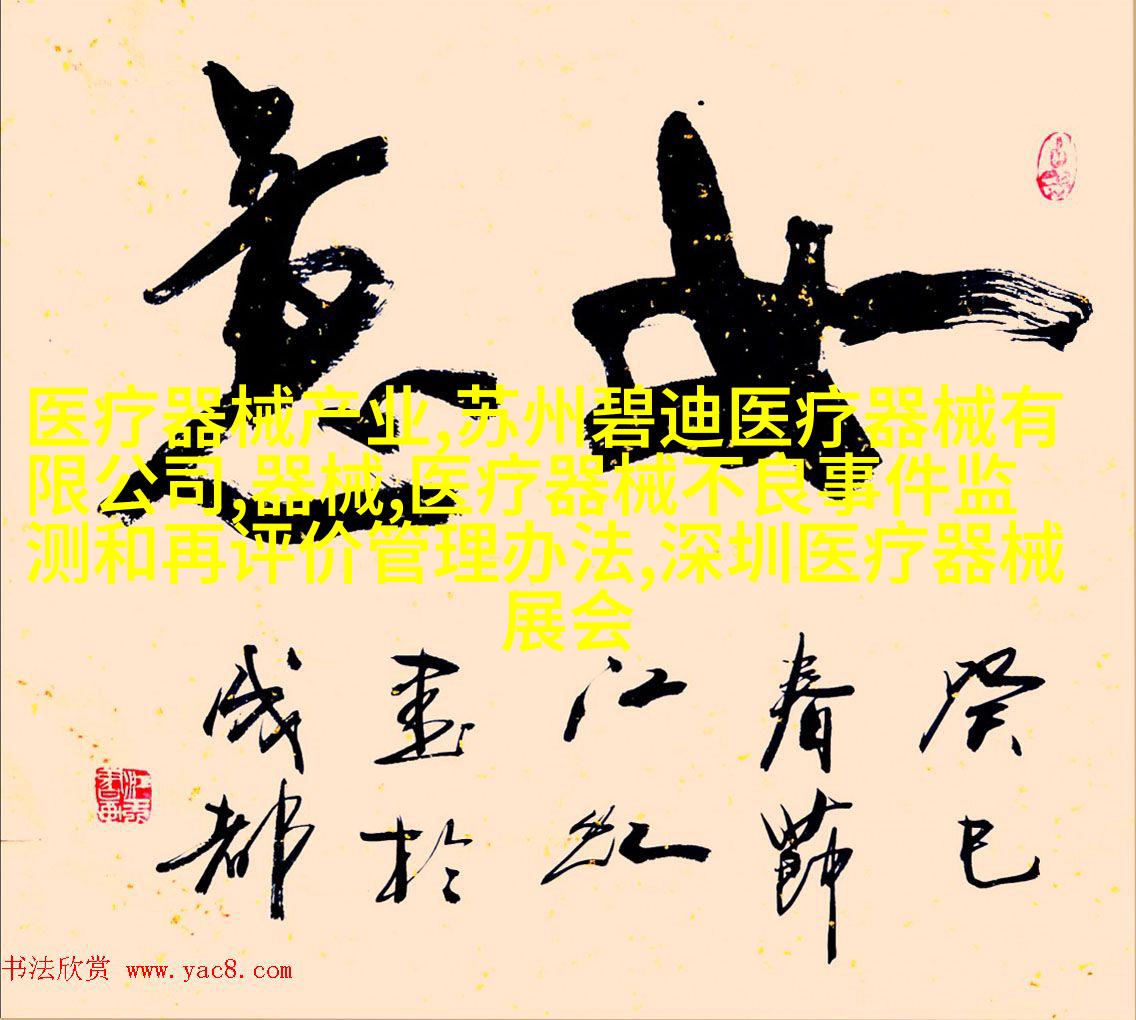 如意
医疗器械产业,苏州碧迪医疗器械有
限公司,器械,医疗器械不良事件监
测和再评价管理办法,深圳医疗器械
展会
癸巳
春节
江红
书于
成都
书法欣赏 www.yac8.com